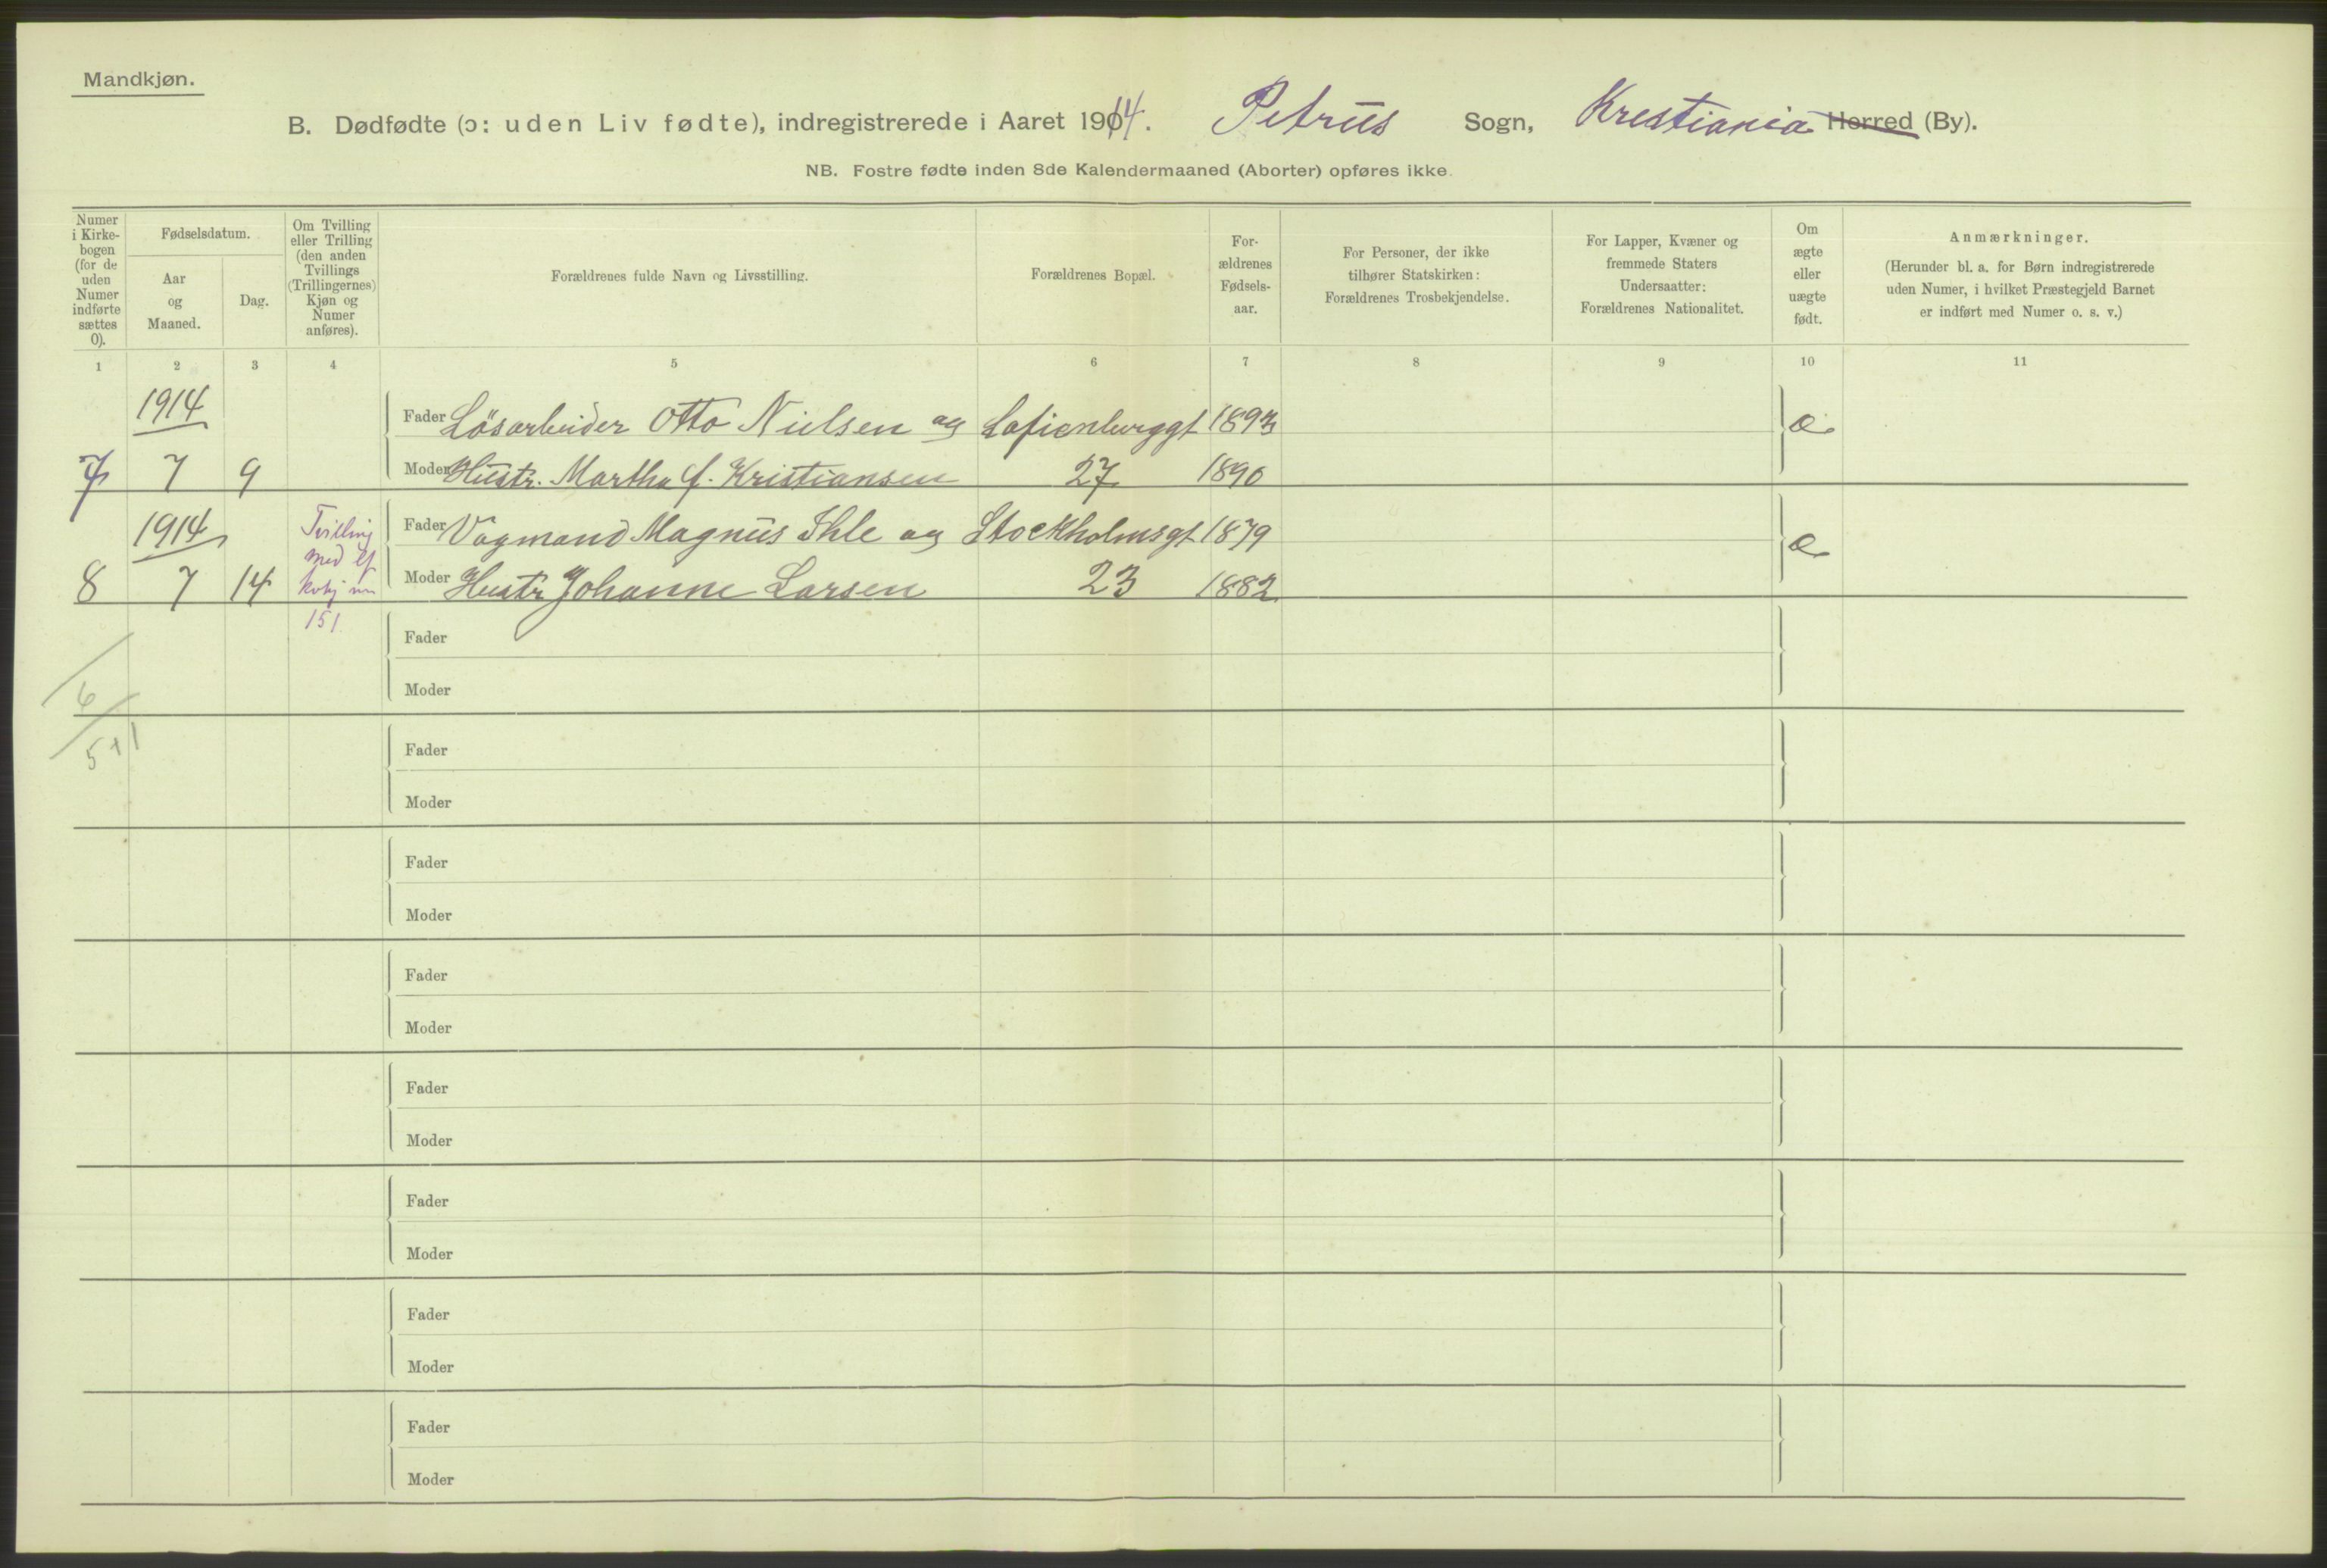 Mandkjøn.
B. Dødfødte (ɔ: uden Liv fødte), indregistrerede i Aaret 1914. Petrus Sogn, Kristiania Herred (By).
NB. Fostre fødte inden 8de Kalendermaaned (Aborter) opføres ikke.
Numer i Kirkebogen (for de uden Numer indførte sættes 0).
Fødselsdatum.
Aar og Maaned.
Dag.
Om Tvilling eller Trilling (den anden Tvillings (Trillingernes) Kjøn og Numer anføres).
Forældrenes fulde Navn og Livsstilling.
Forældrenes Bopæl.
Forældrenes Fødselsaar.
For Personer, der ikke tilhører Statskirken: Forældrenes Trosbekjendelse.
For Lapper, Kvæner og fremmede Staters Undersaatter: Forældrenes Nationalitet.
Om ægte eller uægte født.
Anmærkninger.
(Herunder bl. a. for Børn indregistrerede uden Numer, i hvilket Præstegjeld Barnet er indført med Numer o. s. v.)
1 2 3 4 5 6 7 8 9 10 11
1914
Fader Løsarbeider Otto Nielsen og Sofienberggt 1893 æ
7 7 9 Moder Hustr. Martha f. Kristiansen 27 1890
1914 Tvilling Fader Vognmand Magnus Ihle og Stockholmsgt 1879 æ
med lf
8 7 14 Moder Hustr Johanne Larsen 23 1882
151
Fader
Moder
6
5+1
Fader
Moder
Fader
Moder
Fader
Moder
Fader
Moder
Fader
Moder
Fader
Moder
Fader
Moder